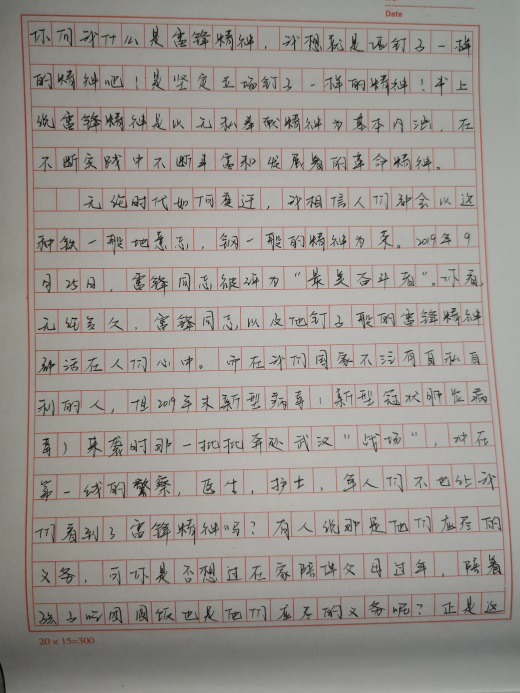 Date
你问我什么是雷锋精神,我想就是颗钉子一样
的精神吧!是坚定立场钉子一样的精神!书上
说雷锋精神是以无私奉献精神为基本内涵,在
不断实践中不断丰富和发展着的革命精神。
无论时代如何变迁,我相信人们都会以这
种铁一般地意志,钢一般的精神为荣。2019年9
月25日,雷锋同志被评为"最美奋斗者"。你看,
无论多久,雷锋同志以及他钉子般的雷锋精神
都活在人们心中。而在我们国家不泛有自私自
利的人,但2019年末新型病毒(新型冠状肺炎病
毒)来袭时那一批批奔赴武汉"战场",冲在
第一线的警察,医生,护士,军人们不也给我
们看到了雷锋精神吗?有人说那是他们应尽的
义务,可你是否想过在家陪伴父母过年,陪着
孩子吃团圆饭也是他们应尽的义务呢?正是这
20×15=300